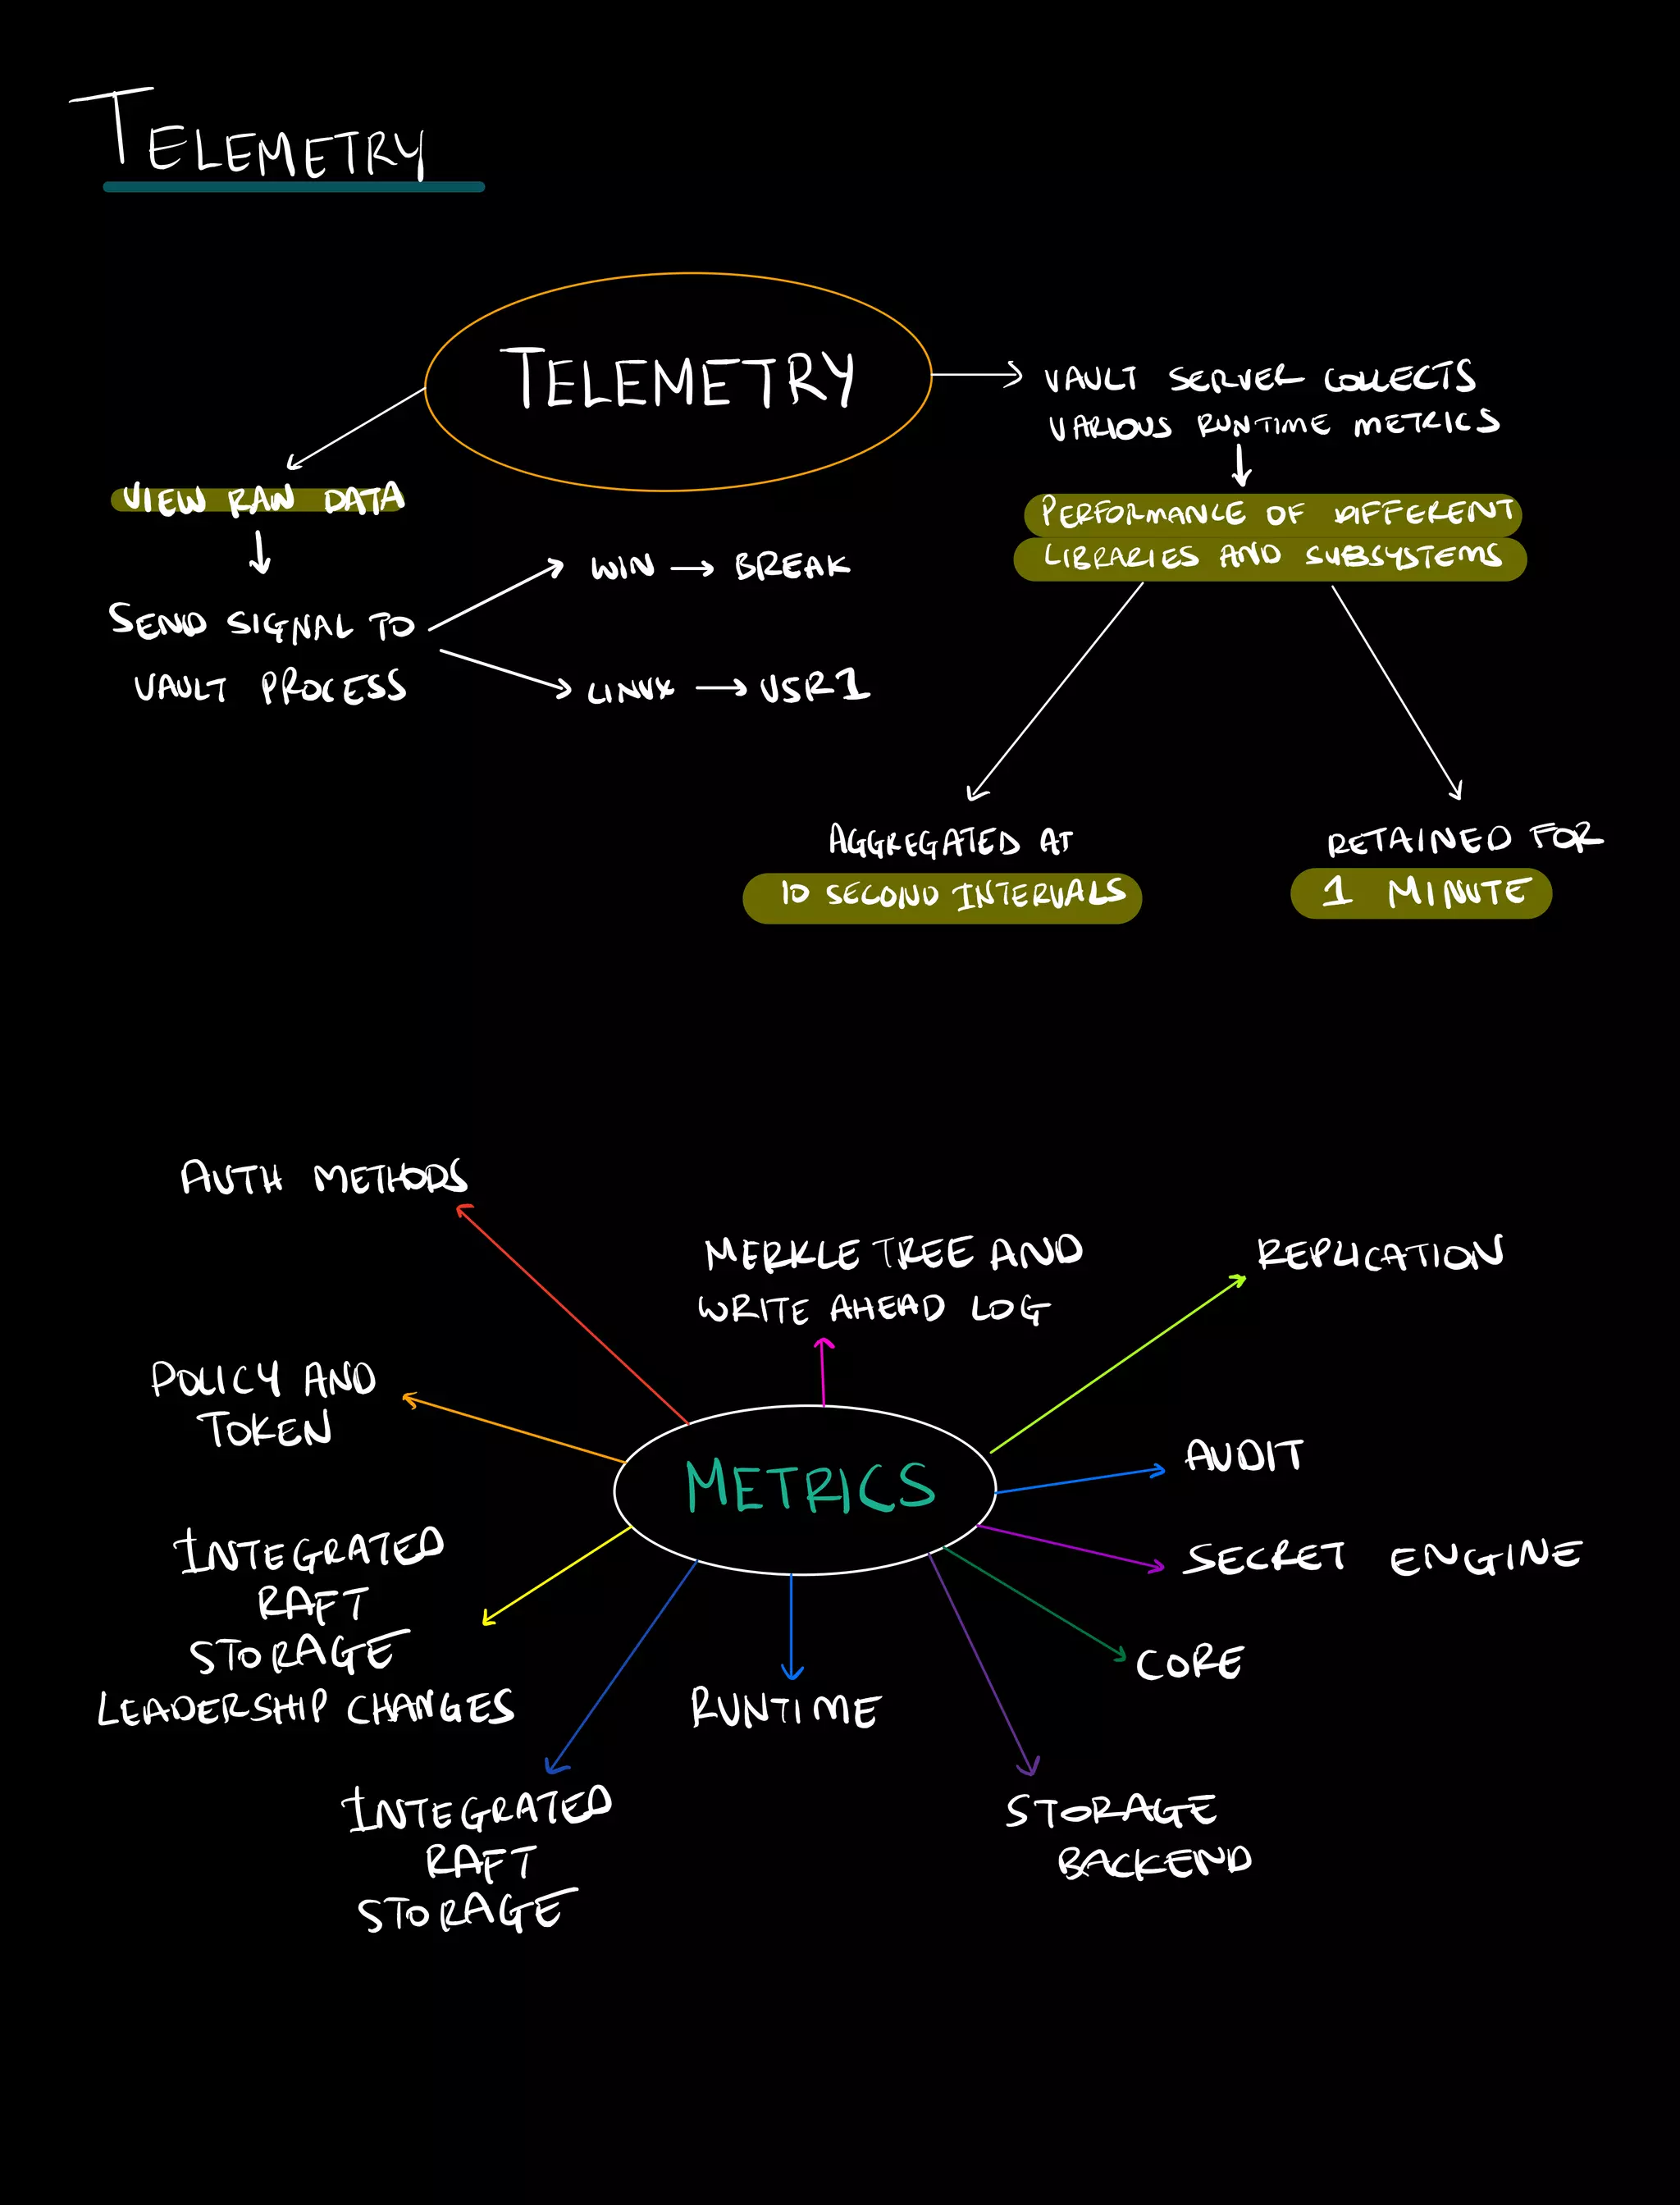 TELEMETRY
TELEMETRY
VAULT SERVER COLLECTS
VARIOUS RUNTIME METRICS
PERFORMANCE OF DIFFERENT
LIBRARIES AND SUBSYSTEMS
AGGREGATED AT
10 SECOND INTERVALS
RETAINED FOR
1 MINUTE
VIEW RAW DATA
SEND SIGNAL TO
VAULT PROCESS
WIN → BREAK
LINUX → USR1
METRICS
AUTH METHODS
MERKLE TREE AND
WRITE AHEAD LOG
REPLICATION
POLICY AND
TOKEN
AUDIT
SECRET ENGINE
INTEGRATED
RAFT
STORAGE
LEADERSHIP CHANGES
CORE
RUNTIME
INTEGRATED
RAFT
STORAGE
STORAGE
BACKEND